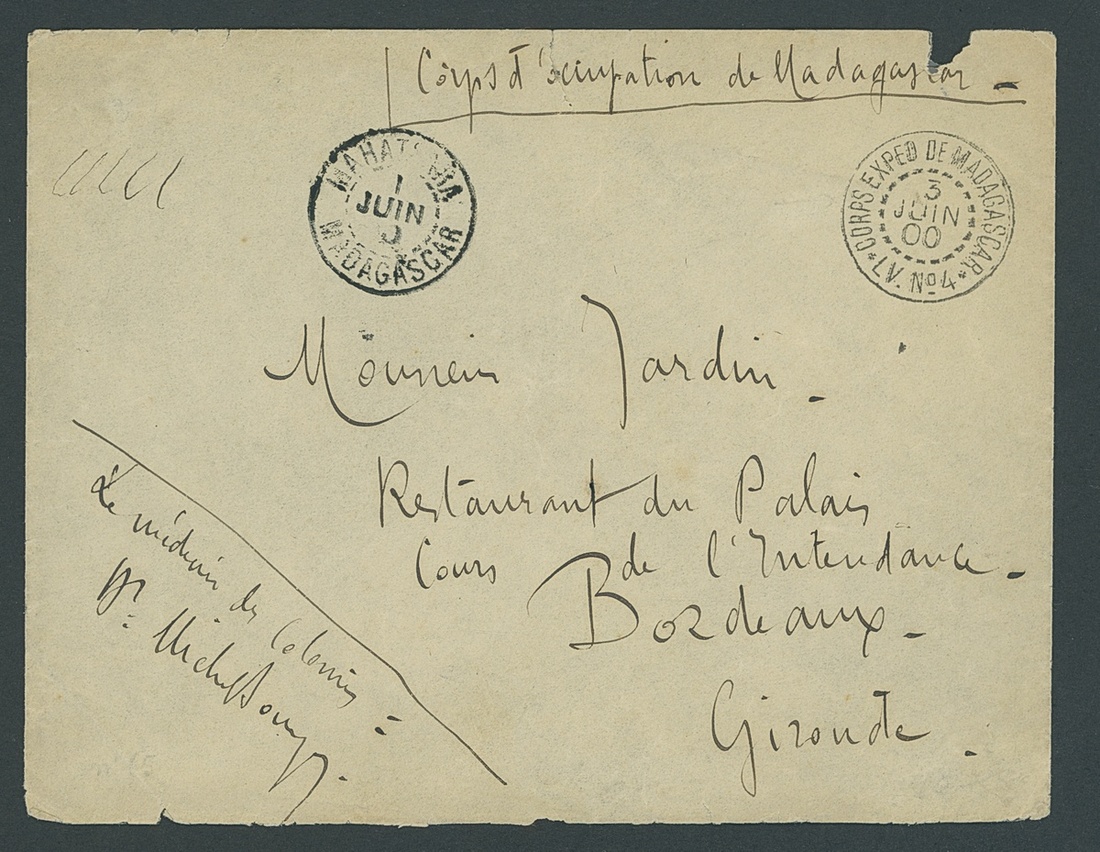 Corps d'occupation de Madagascar -
MAHAT
MADAGASCAR
1
JUIN
CORPS EXPED DE MADAGASCAR
* LV. No 4 *
3
JUIN
00
Monsieur Jardin -
Restaurant du Palais
Cours de l'Intendance -
Bordeaux -
Gironde -
Le médecin des Colonies =
Dr. Michel